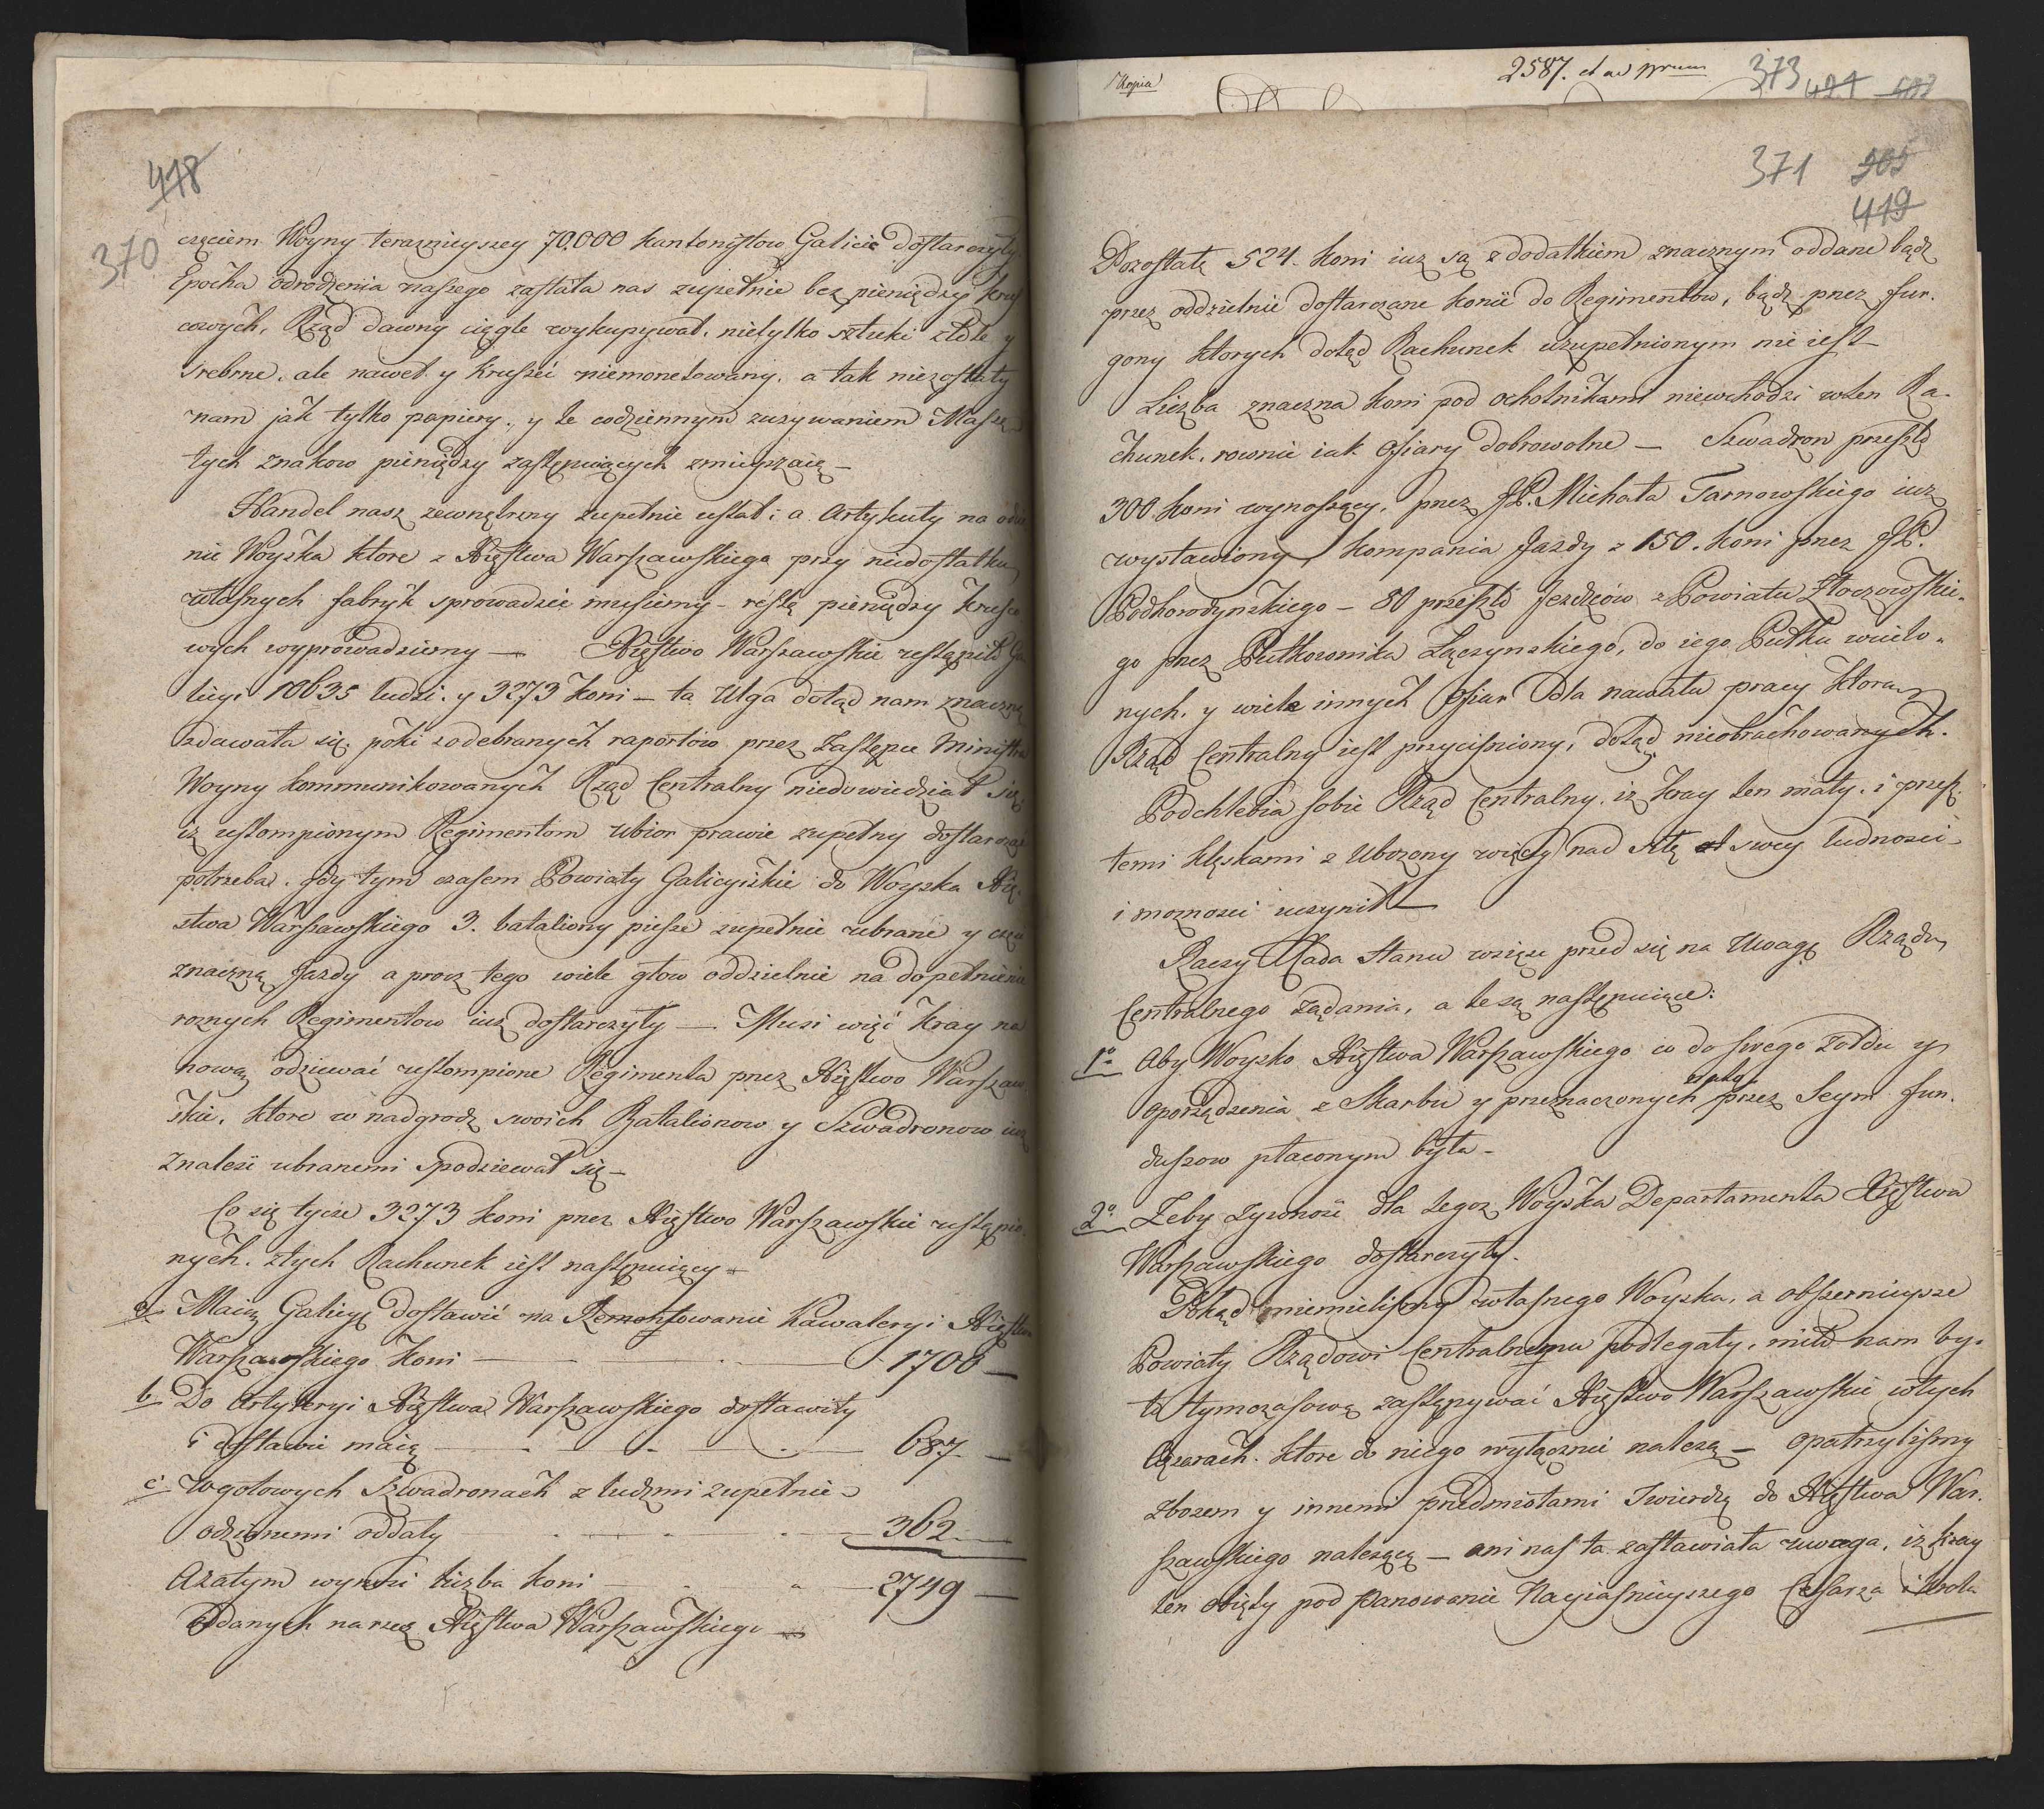 418
370
częciem Woyny terazniejszey 70.000 kantonistow Galicie dostarczyły
Epocha odrodzenia naszego zastała nas zupełnie bez pieniędzy krusz
cowych, Rząd dawny ciągle wykupywał, nietylko sztuki złote y
srebrne, ale nawet y kruszci niemonetowany, a tak niezostały
nam jak tylko papiery, y te codziennym zuzywaniem
tych znakow pieniędzy zastępuiących zmieyszaią —
Handel nasz zewnętrzny zupełnie ustał; a Artykuły na
nie Woyska ktore z Xięstwa Warszawskiego przy niedostatku
własnych fabryk sprowadzić musiemy — resztę pieniędzy krusco
wych wyprowadziemy — Xięstwo Warszawskie ustąpiło Ga
licyi 10635 ludzi, y 3273 koni — ta Ulga dotąd nam znaczną
zdawała się, poki z odebranych raportow przez Zastępcę Ministra
Woyny kommunikowanych Rząd Centralny niedowiedział się,
iz ustompionym Regimentom Ubior prawie zupełny dostarczać
potrzeba. Gdy tym czasem Powiaty Galicyiskie do Woyska Xię-
stwa Warszawskiego 3. bataliony piesze zupełnie ubrane y część
znaczną Jazdy a procz tego wiele głow oddzielnie na dopełnienie
roznych Regimentow iuz dostarczyły — Musi więc Kray na
nową odziewać ustompione Regimenta przez Xięstwo Warszaw
skie, ktore w nadgrodę swoich Batalionow y Szwadronow iuz
znaleść ubranemi spodziewał się —
Co się tycze 3273 koni przez Xięstwo Warszawskie ustąpio-
nych. ztych Rachunek iest następuiący —
a. Maią Galicye dostawić na Remontowanie Kawaleryi Xięstwa
Warszawskiego koni — 1700 —
b. Do Artyleryi Xięstwa Warszawskiego dostawiły
i dostawić maią — 687 —
c. w gotowych Szwadronach z ludzmi zupełnie
odzianemi oddały — 362 —
A zatym wynosi liczba koni — 2749 —
oddanych na rzecz Xięstwa Warszawskiego —
Kopia
2587. et ad
373 421
371 505
419
Pozostałe 524. koni iuz są z dodatkiem znacznym oddane bądz
przez oddzielnie dostarczane konie do Regimentow, bądz przez fur-
gony ktorych dotąd Rachunek uzupełnionym nie iest —
Liczba znaczna koni pod ochotnikami niewchodzi wten Ra-
chunek, rownie iak Ofiary dobrowolne — Szwadron przeszło
300 koni wynoszący, przez JP. Michała Tarnowskiego iuz
wystawiony, kompania Jazdy z 150. koni przez JP.
Podhorodynskiego — 80 przeszło Jezdzcow z Powiatu Złoczowskie-
go przez Pułkownika Łączynskiego, do iego Pułku wcielo-
nych, y wiele innych Ofiar dla nawału pracy ktorą
Rząd Centralny iest przycisniony, dotąd nieobrachowanych.
Podchlebia sobie Rząd Centralny, iz Kray ten mały, i przesz-
łemi klęskami zubozony więcey nad siłę swey ludnosci
i moznosci uczynił —
Raczy Rada Stanu wziąść przed się na Uwagę Rządu
Centralnego ządania, a te są następuiące:
1o Aby Woysko Xięstwa Warszawskiego co do swego zołdu y
oporządzenia z Skarbu y przeznaczonych przez Seym fun-
duszow płaconym było —
2o Zeby zywnosć dla tegoz Woyska Departamenta Xięstwa
Warszawskiego dostarczyły.
Pokąd niemielismy własnego Woyska, a obszernieysze
Powiaty Rządowi Centralnemu podlegały, miło nam by-
ło tymczasowo zastępywać Xięstwo Warszawskie w tych
Cięzarach, ktore do niego wyłącznie nalezą — opatrzylismy
zbozem y innemi przedmiotami Twierdzę do Xięstwa War-
szawskiego nalezącą — ani nas ta zastawiała uwaga, iz kray
ten obięty pod Panowanie Nayiasnieyszego Cesarza i Krola